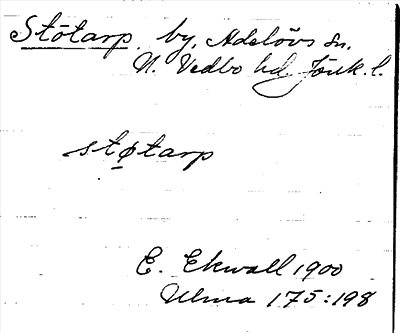 Stötarp. by, Adelövs sn.
N. Vedbo hd. Jönk. l.
støtarp
E. Ekwall 1900
Ulma 175:198